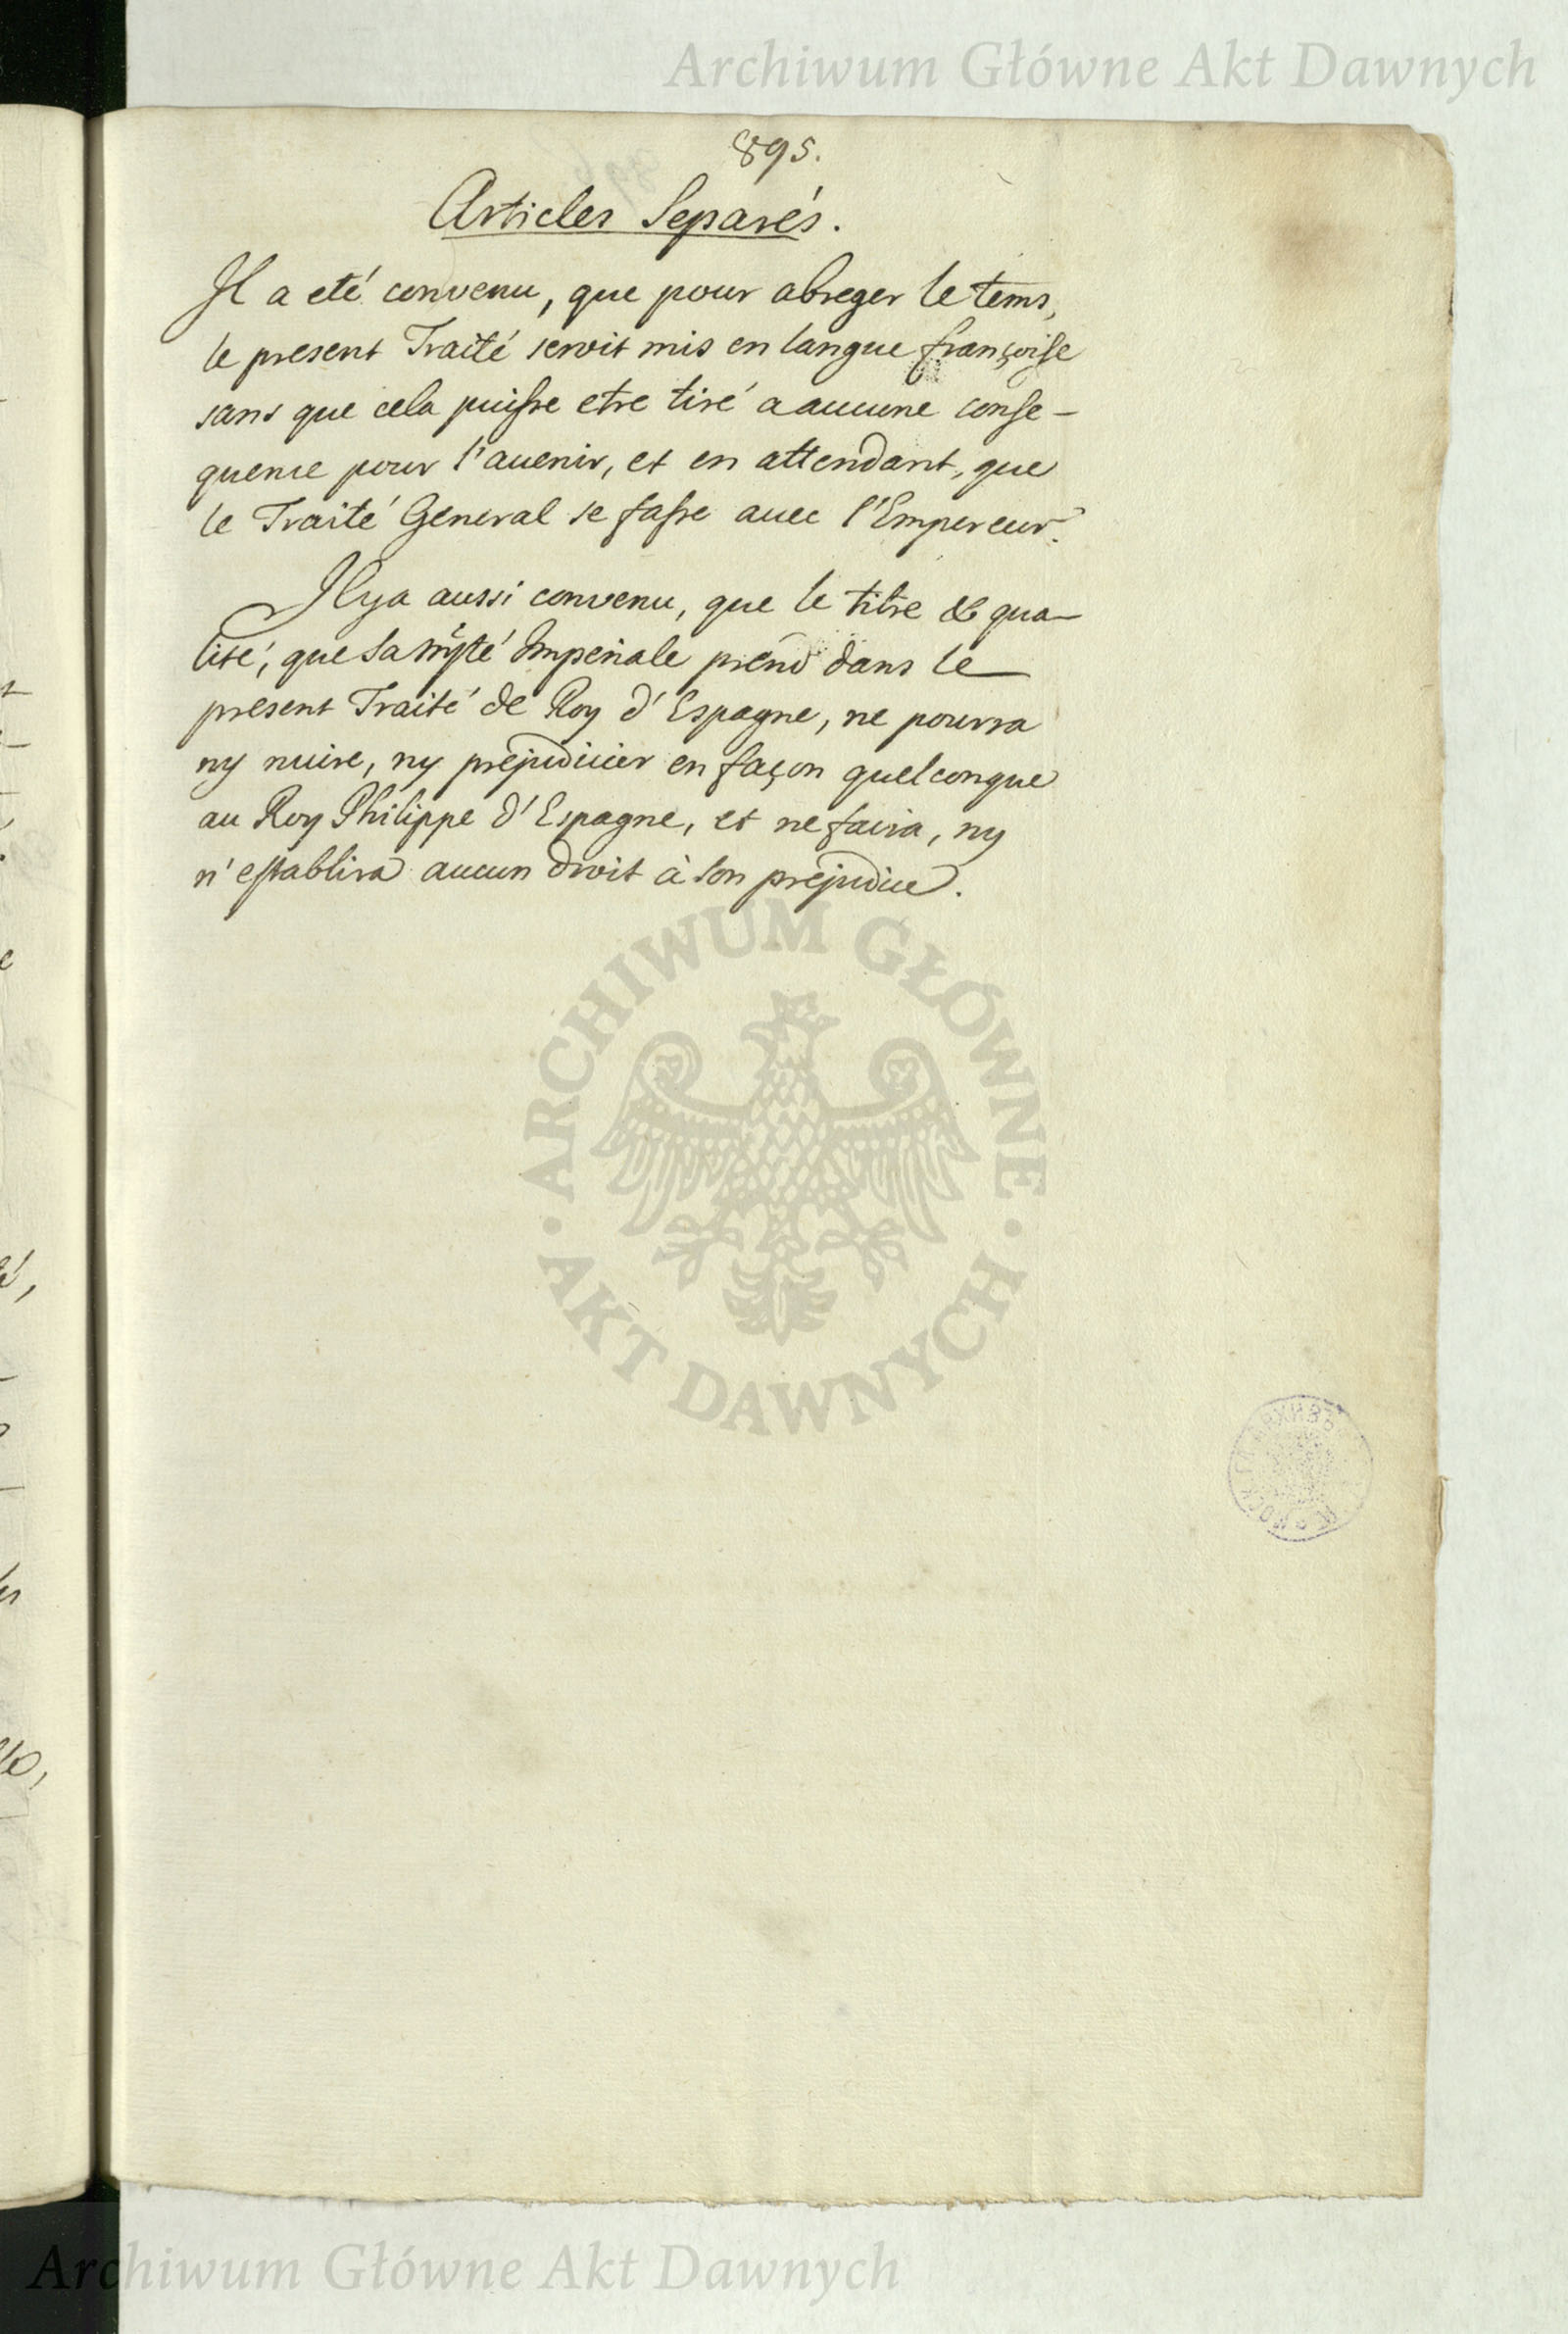 Archiwum Główne Akt Dawnych
895.
Articles Separés.
Il a eté convenu, que pour abreger le tems,
le present Traité seroit mis en langue françoise
sans que cela puisse etre tiré a aucune conse-
quence pour l'auenir, et en attendant, que
le Traité General se fasse auec l'Empereur.
Il y a aussi convenu, que le titre & qua-
lité, que Sa Mjté Imperiale prend dans le
present Traité de Roy d'Espagne, ne pourra
ny nuire, ny prejudicier en façon quelconque
au Roy Philippe d'Espagne, et ne faira, ny
n'establira aucun droit à son prejudice.
ARCHIWUM GŁÓWNE
AKT DAWNYCH
Archiwum Główne Akt Dawnych